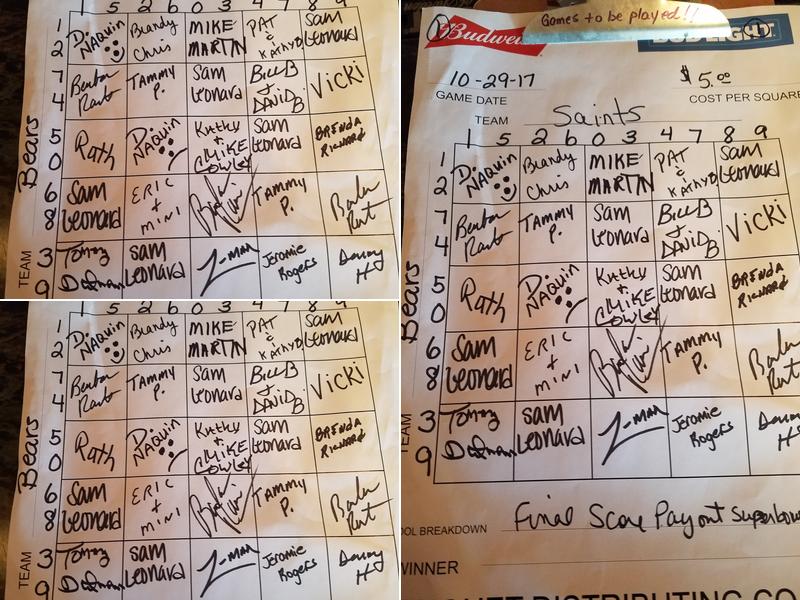 1 5 2 6 0 3 4 7 8 9
1 2 D. NAQUIN Brandy Chris MIKE MARTIN PAT & KATHYB Sam Leonard
7 4 TAMMY P. Sam Leonard BILL B & DAVID B. Vicki
Bears 5 0 Roth D. NAQUIN Kathy + MIKE COWLEY Sam Leonard BRENDA RICHARD
6 8 Sam Leonard ERIC + MINI TAMMY P.
TEAM 3 9 Tommy Sam Leonard Z-MAN Jeromie Rogers Danny H
1 5 2 6 0 3 4 7 8 9
1 2 D. NAQUIN Brandy Chris MIKE MARTIN PAT & KATHYB Sam Leonard
7 4 TAMMY P. Sam Leonard BILL B & DAVID B. Vicki
Bears 5 0 Roth D. NAQUIN Kathy + MIKE COWLEY Sam Leonard BRENDA RICHARD
6 8 Sam Leonard ERIC + MINI TAMMY P.
TEAM 3 9 Tommy Sam Leonard Z-MAN Jeromie Rogers Danny H
Games to be played!!
Budwei BUD LIGHT
10-29-17 $5.00
GAME DATE COST PER SQUARE
TEAM Saints
1 5 2 6 0 3 4 7 8 9
1 2 D. NAQUIN Brandy Chris MIKE MARTIN PAT & KATHYB Sam Leonard
7 4 TAMMY P. Sam Leonard BILL B & DAVID B. Vicki
Bears 5 0 Roth D. NAQUIN Kathy + MIKE COWLEY Sam Leonard BRENDA RICHARD
6 8 Sam Leonard ERIC + MINI TAMMY P.
TEAM 3 9 Tommy Sam Leonard Z-MAN Jeromie Rogers Danny H
OOL BREAKDOWN Final Score Payout Superbow
WINNER
DISTRIBUTING CO